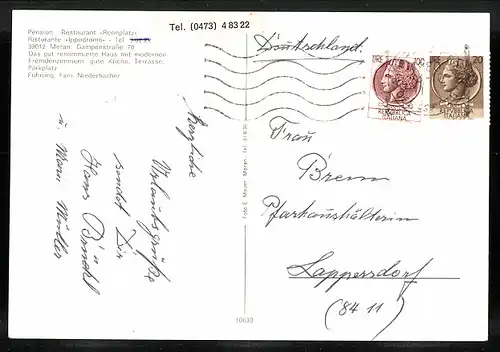 Tel. (0473) 48322
Pension Restaurant «Rennplatz»
Ristorante «Ippodromo» - Tel.
39012 Meran Gampenstraße 70
Das gut renommierte Haus mit modernen
Fremdenzimmern gute Küche, Terrasse,
Parkplatz
Führung: Fam. Niederbacher
Deutschland
LIRE 100
REPUBBLICA
ITALIANA
LIRE 20
REPUBBLICA
ITALIANA
Herzliche
Urlaubsgrüße
sendet Dir
Hans
u.
Foto E. Meyer Meran Tel.
10633
Frau
Brem
Pfarrhaushälterin
Lappersdorf
(8411)